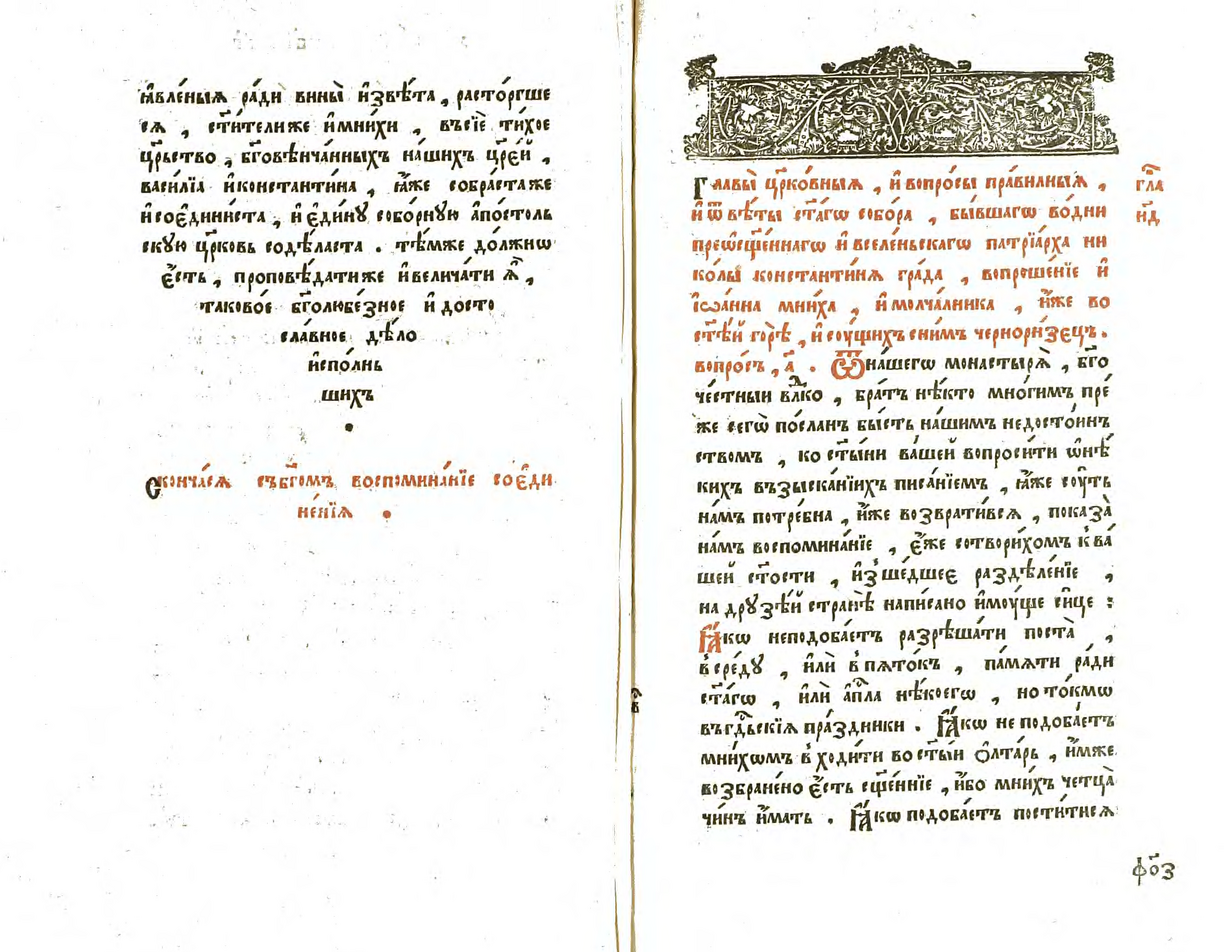 ꙗ҆вле́ныѧ ра́ди вины̀ и҆звѣ́та , расто́ргше
сѧ , ст҃и́телиже и҆мни́хи , въсїѐ ти́хое
цр҃ьство , бг҃овѣнча́нныхъ на́шихъ цр҃е́й ,
васи́лїа и҆константи́на , ꙗ҆́же собра́стаже
и҆сое҆дини́ста , и҆ є҆ди́нꙋ собо́рнꙋю а҆по́столь
скꙋю цр҃ковь содѣ́ласта . тѣ́мже до́лжнѡ
є҆́сть , проповѣ́датиже и҆велича́ти ѧ҆̀ ,
таково́е бг҃олюбе́зное и҆ досто
сла́вное дѣ́ло
и҆спо́лнь
шихъ
.
Сконча́сѧ събг҃омъ воспомина́нїе сое҆ди
не́нїѧ .
Главы̀ цр҃ко́вныѧ , и҆ вопро́сы пра́вилныѧ ,
и҆ ѿвѣ́ты ст҃а́гѡ собо́ра , бы́вшагѡ во́дни
прем҆ѡсщ҃е́ннагѡ и҆ вселе́ньскагѡ патрїа́рха ни
ко́лы̀ константи́нѧ гра́да , вопроше́нїе и҆
і҆ѡа́нна мни́ха , и҆ молча́лника , и҆́же во
ст҃ѣ́й горѣ̀ , и҆ соу́щихъ сни́мъ чернори́зєцъ .
вопро́съ , а҃ . Ѿна́шегѡ монастырѧ̀ , бг҃о
че́стныи влⷣко , бра́тъ нѣ́кто мно́гимъ пре́
же сегѡ̀ по́сланъ бы́сть на́шимъ недосто́инъ
ствомъ , ко ст҃ы́ни ва́шей вопроси́ти ѡ҆нѣ́
кихъ възыска́нїихъ писа́нїемъ , ꙗ҆́же соу́ть
на́мъ потре́бна , и҆́же возврати́всѧ , показа̀
на́мъ воспомина́нїе , є҆́же сотвори́хомъ к ва́
шей ст҃ости , и҆зше́дшеє раздѣле́нїе ,
на дрꙋзѣ́й странѣ̀ написано и҆моу́ще си́це :
Ꙗ҆́кѡ неподоба́етъ разрѣша́ти поста̀ ,
в сре́дꙋ , и҆лѝ в пѧто́къ , па́мѧти ра́ди
ст҃а́гѡ , и҆лѝ а҆пⷭ҇ла нѣ́коегѡ , но то́кмѡ
въгдⷭ҇ьскїѧ пра́здники . Ꙗ҆́кѡ не подоба́етъ
мни́хѡмъ в ходи́ти во ст҃ы́и ѻ҆лта́рь , и҆́мже
возбранено̀ є҆́сть сщ҃е́нїе , и҆́бо мни́хъ четца̀
чи́нъ и҆́мать . Ꙗ҆́кѡ подоба́етъ пости́тисѧ
гла҃
н҃д
фо҃з